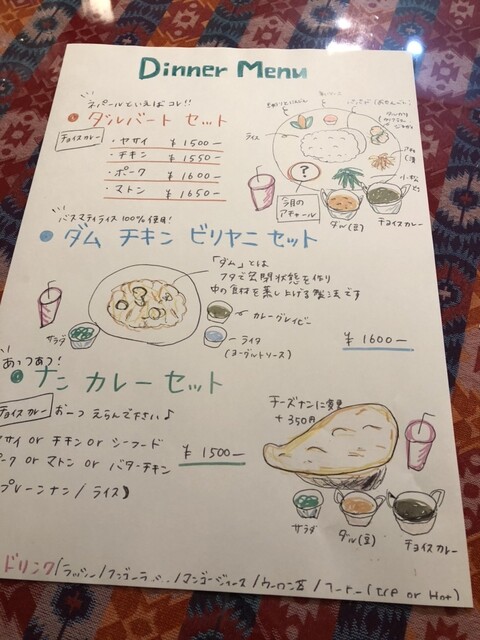 Dinner Menu
ネパールといえばコレ!!
ダルバート セット
チョイスカレー
・ヤサイ ¥1500-
・チキン ¥1550-
・ポーク ¥1600-
・マトン ¥1650-
ライス
今月の
アチャール
ダル(豆)
チョイスカレー
バスマティライス100%使用!
ダム チキン ビリヤニ セット
「ダム」とは
フタで密閉状態を作り
中の食材を蒸し上げる製法です
カレーグレイビー
サラダ
ライタ
(ヨーグルトソース)
¥1600-
あっつあつ!
ナン カレー セット
チョイスカレー お一つ えらんで下さい♪
ヤサイ or チキン or シーフード
ポーク or マトン or バターチキン
¥1500-
(プレーンナン/ライス)
チーズナンに変更
+350円
サラダ
ダル(豆)
チョイスカレー
ドリンク/ラッシー/マンゴーラッシー/マンゴージュース/ウーロン茶/コーヒー(ICE or Hot)